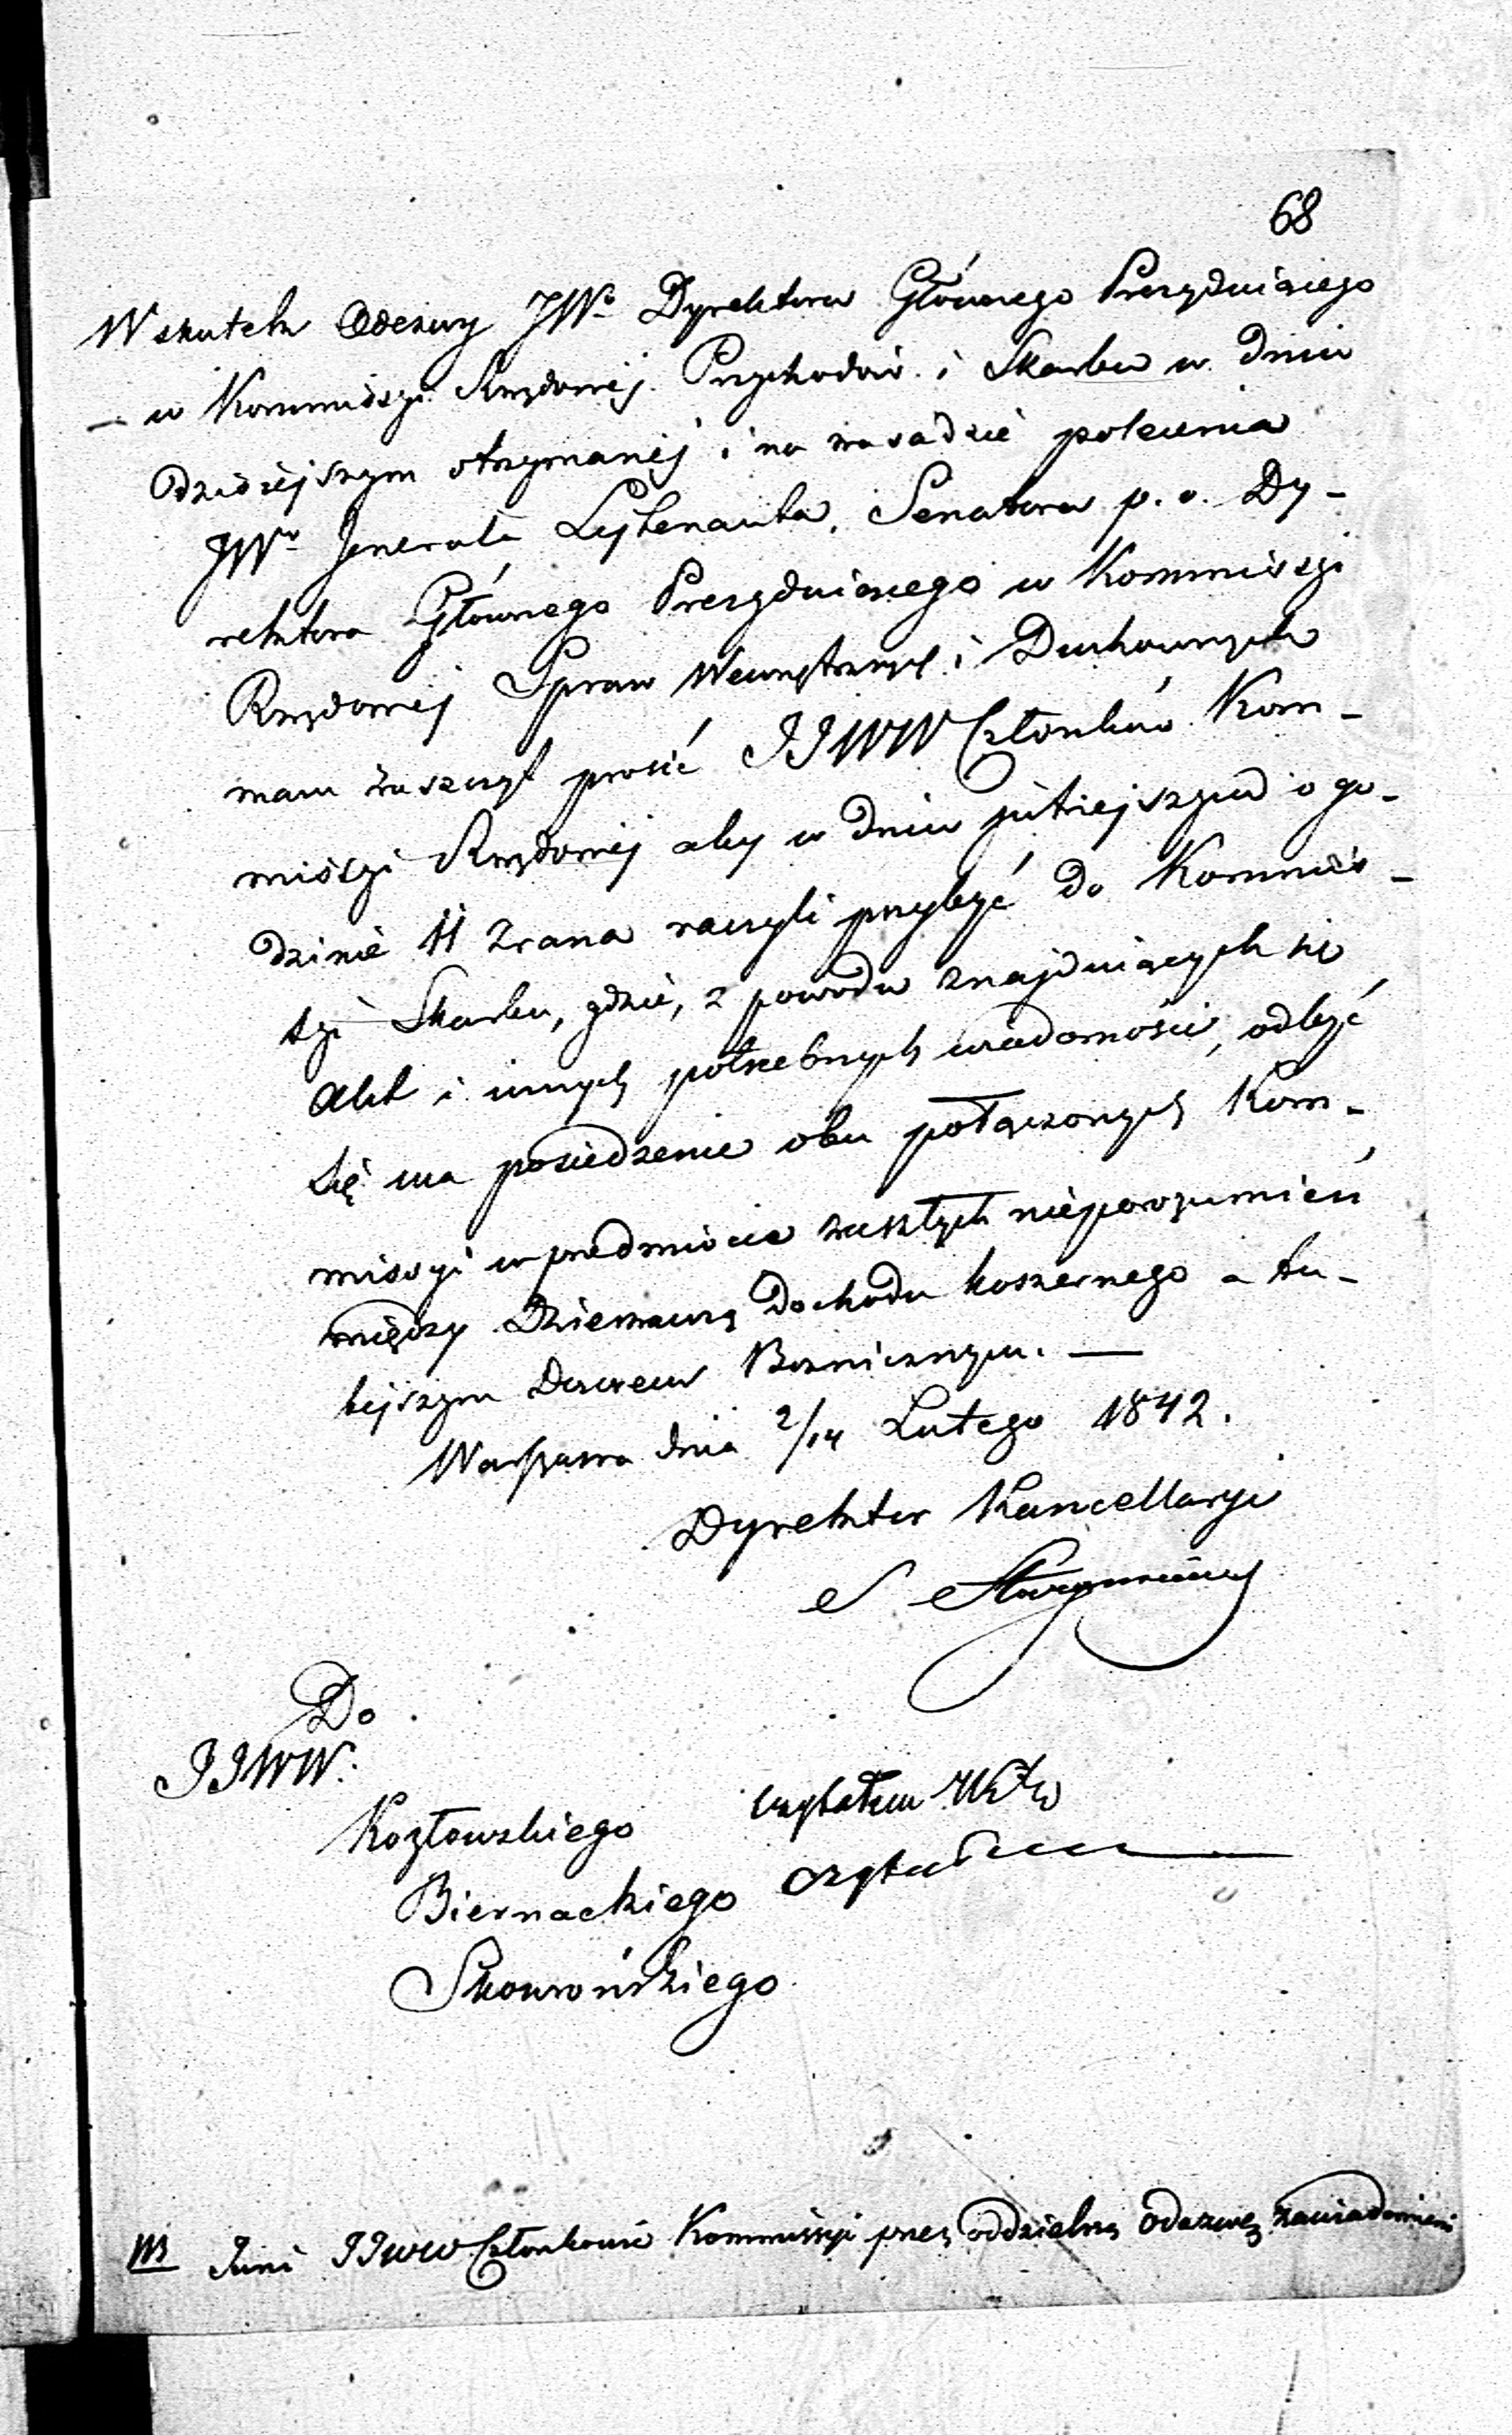 68
W skutek Odezwy JWo Dyrektora Głównego Prezyduiącego
— w Kommissyi Rządowéj Przychodów i Skarbu w dniu
dzisiejszym otrzymanéj i na zasadzie polecenia
JWo Jenerała Lejtenanta, Senatora p. o. Dy-
rektora Głównego Prezyduiącego w Kommissyi
Rządowéj Spraw Wewnętrznych i Duchownych
mam zaszczyt prosić JJWW Członków Kom-
missyi Rządowéj aby w dniu jutrzejszym o go-
dzinie 11 zrana raczyli przybyć do Kommis-
syi Skarbu, gdzie, z powodu znajduiących się
akt i innych potrzebnych wiadomości, odbyć
się ma posiedzenie obu połączonych Kom-
missyi w przedmiocie zaszłych nieporozumień
między Dzierzawcą Dochodu koszernego a tu-
tejszym Dozorem Bożnicznym. —
Warszawa dnia 2/14 Lutego 1842.
Dyrektor Kancellaryi
Do
JJWW.
Kozłowskiego czytałem
Biernackiego czytałem
Skowrońskiego
NB Inni JJWW Członkowie Kommissyi przez oddzielną Odezwę zawiadomieni